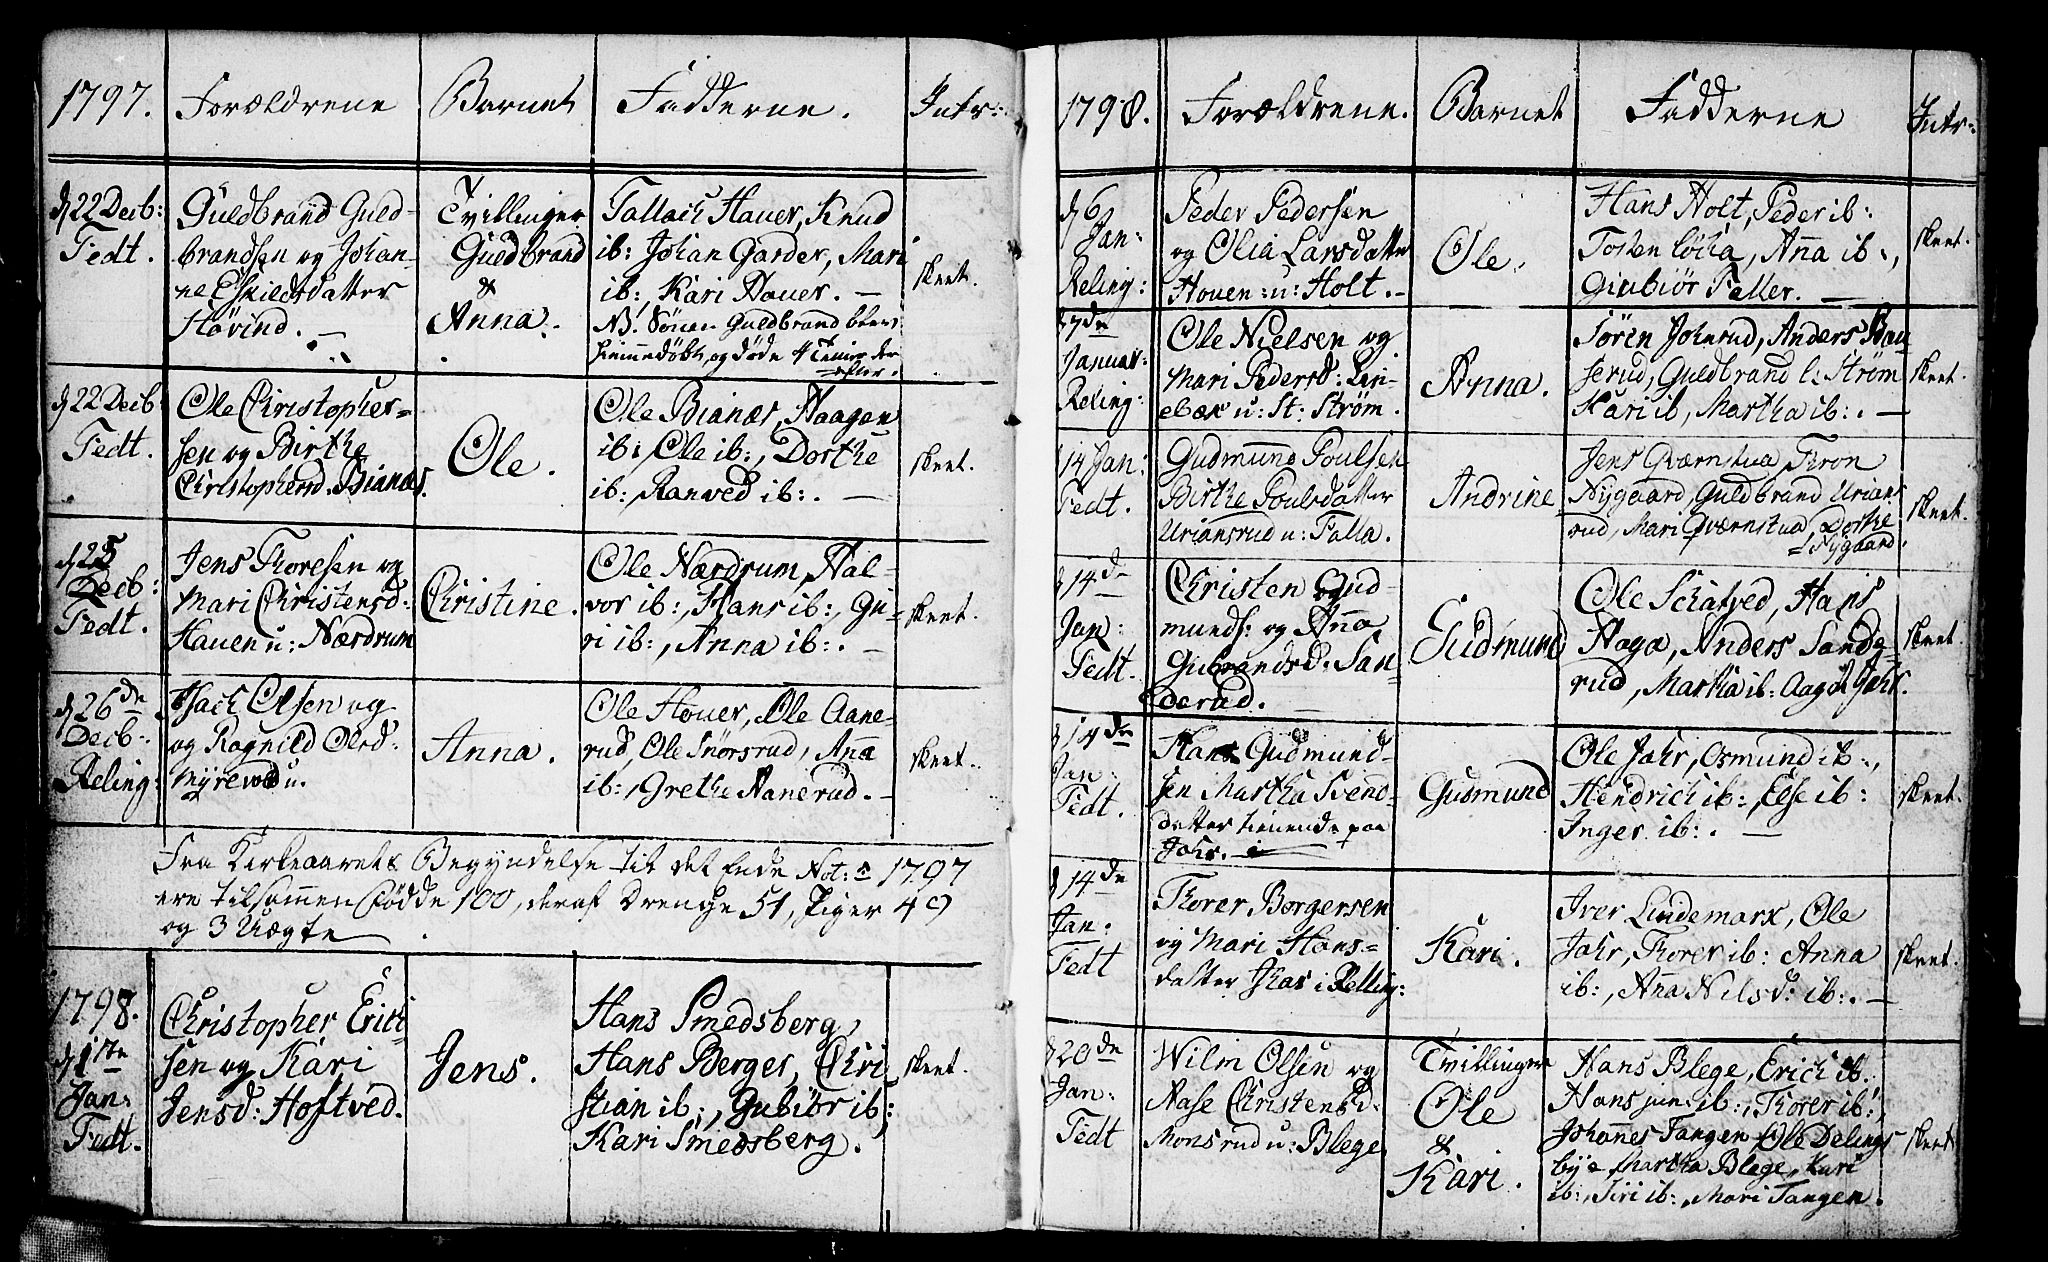 1797. Forældrene Barnet Fadderne. Intr:
d 22 Decb: Fedt.
Guldbrand Guld-
brandsen og Johan-
ne Eskildsdatter
Høvind. —
Tvillinger
Guldbrand
&
Anna.
Tallach Hauer, Knud
ib: Johan Garder, Mari
ib:, Kari Hauer. —
NB. Sønen Guldbrand blev
hiemedøbt, og døde 4 Timer der
efter.
skeet.
d 22 Decb
Fedt.
Ole Christopher-
sen og Birthe
Christophersd. Bianæs.
Ole.
Ole Bianæs, Haagen
ib: Ole ib:, Dorthe
ib: Ranved ib:. —
skeet.
d 25
Decb:
Fedt.
Jens Thoresen og
Mari Christensd:
Hauen u: Nærdrum
Christine.
Ole Nærdrum, Hal-
vor ib:, Hans ib:, Gu-
ri ib:, Anna ib:. —
skeet.
d 26de
Decb:
Reling:
Isach Olsen og
og Ragnild Olsd:
Anna.
Ole Houer, Ole Aane-
rud, Ole Snørsrud, Anna
ib:, Grethe Aanerud. —
skeet.
Fra Kirkeaarets Begyndelse til det Ende 1797
ere tilsammen fødde 100, deraf Drenge 51, Piger 49
og 3 Uægte
1798.
d 1ste
Jan:
Fedt.
Christopher Erich
sen og Kari
Jensd: Hoftved.
Jens.
Hans Smedsberg,
Hans Berger, Chri
stian ib:, Gubiør ib:
Kari Smedsberg.
skeet.
1798. Forældrene. Barnet Fadderne Intr:
d 6
Jan:
Reling:
Peder Pedersen
og Olia Larsdatter
Houen u: Holt. —
Ole.
Hans Holt, Peder ib:
Tosten Løcka, Anna ib:,
Giubiør Faller. —
skeet.
d 7de
Januar:
Reling:
Ole Nielsen og
Mari Pedersd:
u: St: Strøm.
Anna.
Søren Johnrud, Anders Hau
serud, Guldbrand l: Strøm
Kari ib, Martha ib:. —
skeet.
d 14 Jan:
Fedt.
Gudmund Poulsen
Birthe Poulsdatter
Uriansrud u: Falla.
Andrine
Jens Qværnstua Thron
Nygaard, Guldbrand Urians
rud, Mari Qværnstua, Dorthe
Nygaard.
skeet.
d 14de
Jan:
Fedt.
Christen Gud-
munds: og Anna
Gubrandsd: San-
derud. —
Gudmund
Ole Schatved, Hans
Haga, Anders Sande
rud, Martha ib: Jahr.
skeet.
d 14de
Jan:
Fedt.
Hans Gudmund
sen Martha Svend
datter tienende paa
Jahr. —
Gudmund
Ole Jahr, Osmund ib:,
Hendrich ib:, Else ib:
Inger ib:. —
skeet.
d 14de
Jan:
Fedt
Thorer Borgersen
og Mari Hans-
datter Jhar i Relling:
Kari.
Iver Lindemark, Ole
Jahr, Thorer ib: Anna
ib:, Anna Nilsd: ib:. —
skeet.
d 20de
Jan:
Fedt
Wilm Olsen og
Aase Christensd:
Monsrud u: Blege
Tvillinger
Ole
&
Kari.
Hans Blege, Erich ib:
Hans jun: ib:, Thorer ib:,
Johannes Tangen, Ole Delings
bye, Martha Blege, Kari
ib:, Siri ib:, Mari Tangen.
skeet